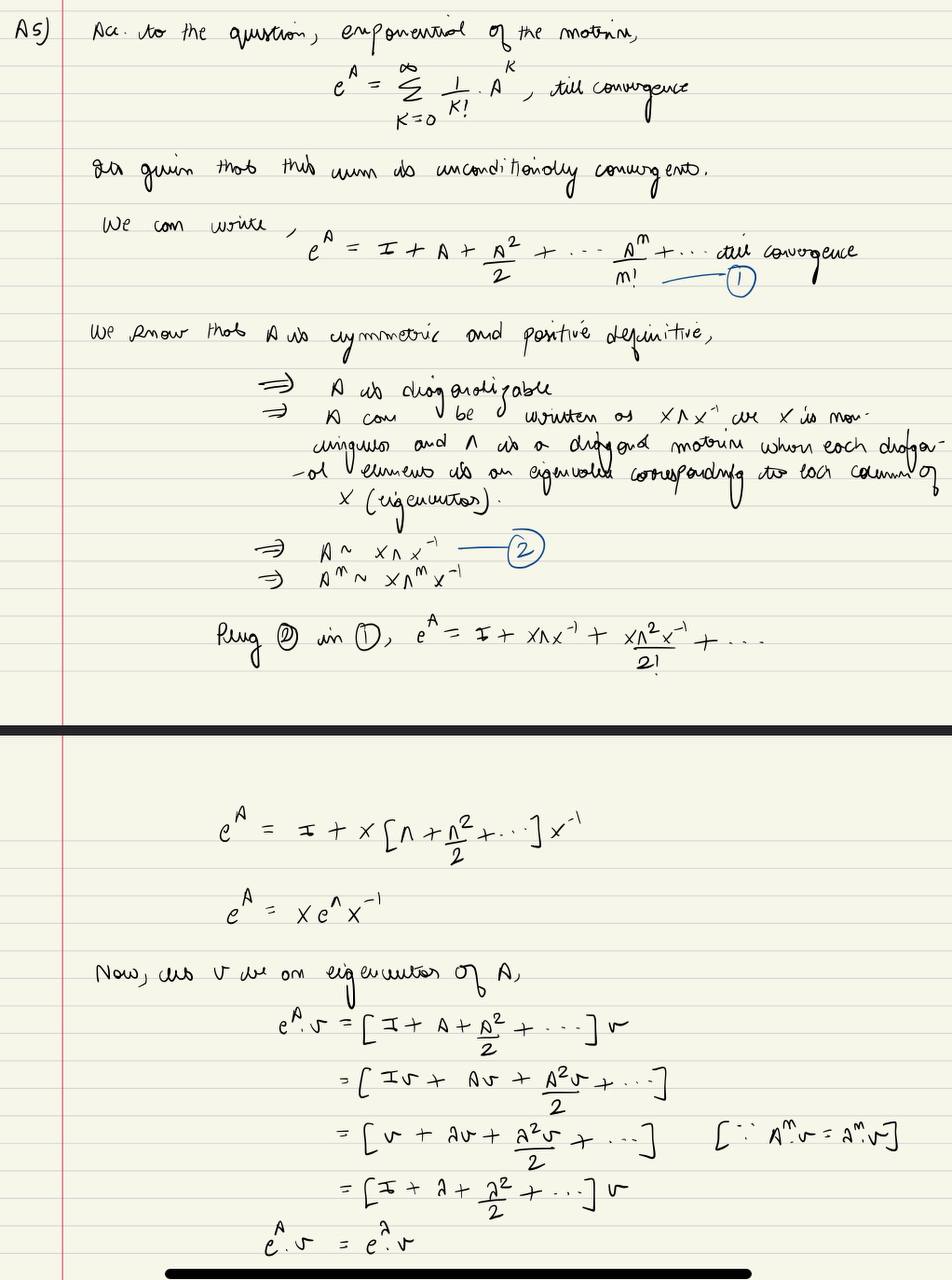 A5) Acc. to the question, exponential of the matrix,
e^A = ∑_{K=0}^{∞} 1/K! · A^K, till convergence
It's given that this sum is unconditionally convergent.
We can write,
e^A = I + A + A²/2 + ··· A^m/m! + ··· till convergence — ①
We know that A is symmetric and positive definitive,
⇒ A is diagonalizable
⇒ A can be written as XΛX⁻¹ where X is non-
singular and Λ is a diagonal matrix where each diagon-
-al element is an eigenvalue corresponding to each column of
X (eigenvector).
⇒ A ~ XΛX⁻¹ — ②
⇒ A^m ~ XΛ^m X⁻¹
Plug ② in ①, e^A = I + XΛX⁻¹ + XΛ²X⁻¹/2! + ···
e^A = I + X[Λ + Λ²/2 + ···]X⁻¹
e^A = Xe^ΛX⁻¹
Now, let v be an eigenvector of A,
e^A·v = [I + A + A²/2 + ···]v
= [Iv + Av + A²v/2 + ···]
= [v + λv + λ²v/2 + ···] [∵ A^m·v = λ^m·v]
= [I + λ + λ²/2 + ···]v
e^A·v = e^λ·v